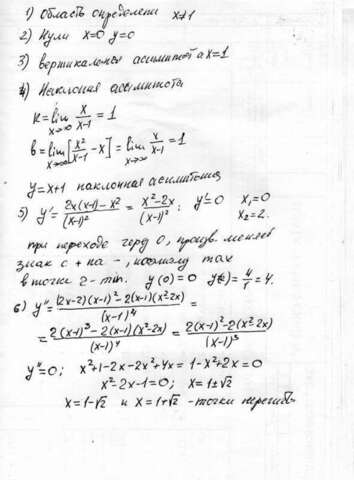 1) Область определени x≠1
2) Нули x=0 y=0
3) вертикальная асимптота x=1
4) Наклонная асимптота
K=lim x→∞ x/(x-1) = 1
b=lim x→∞ [x²/(x-1) - x] = lim x→∞ x/(x-1) = 1
y=x+1 наклонная асимптота
5) y'= (2x(x-1)-x²)/(x-1)² = (x²-2x)/(x-1)²; y'=0 x₁=0
x₂=2.
при переходе через 0, произв. меняет
знак с + на -, поэтому max
в точке 2-min. y(0)=0 y(2)=4/1=4.
6) y''= ((2x-2)(x-1)²-2(x-1)(x²-2x))/(x-1)⁴ =
= (2(x-1)³-2(x-1)(x²-2x))/(x-1)⁴ = (2(x-1)²-2(x²-2x))/(x-1)³
y''=0; x²+1-2x-2x²+4x=1-x²+2x=0
x²-2x-1=0; x=1±√2
x=1-√2 и x=1+√2 - точки перегиба